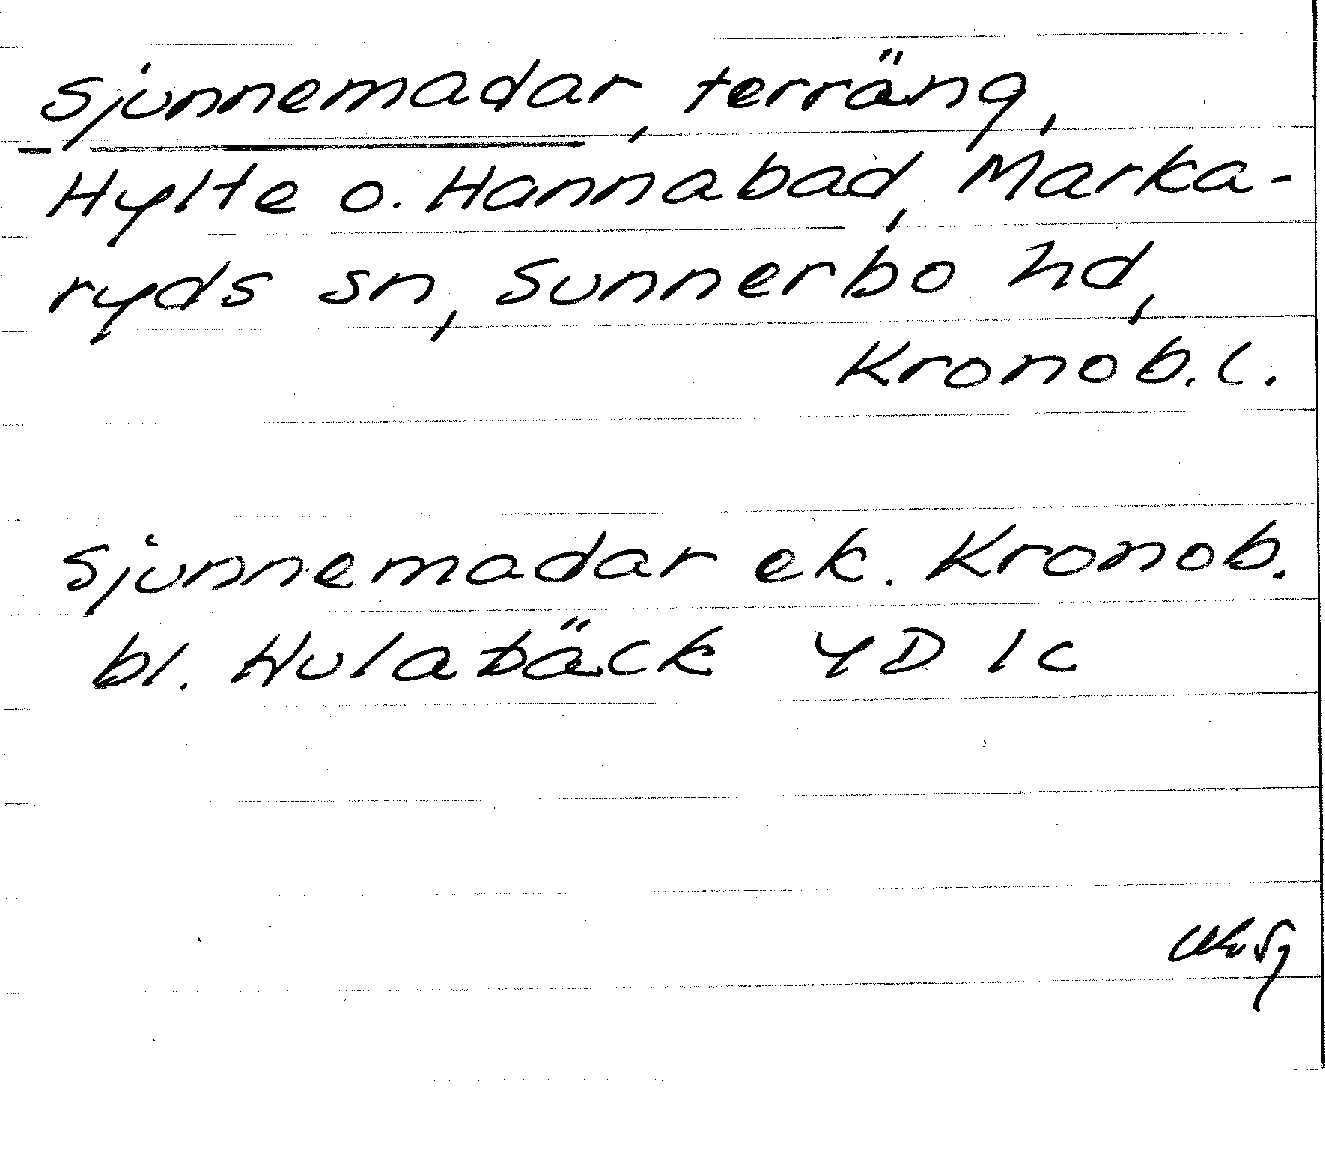 Sjunnemadar, terräng,
Hylte o. Hannabad, Marka-
ryds sn, Sunnerbo hd,
Kronob. l.
Sjunnemadar ek. Kronob.
bl. Hulabäck 4D 1c